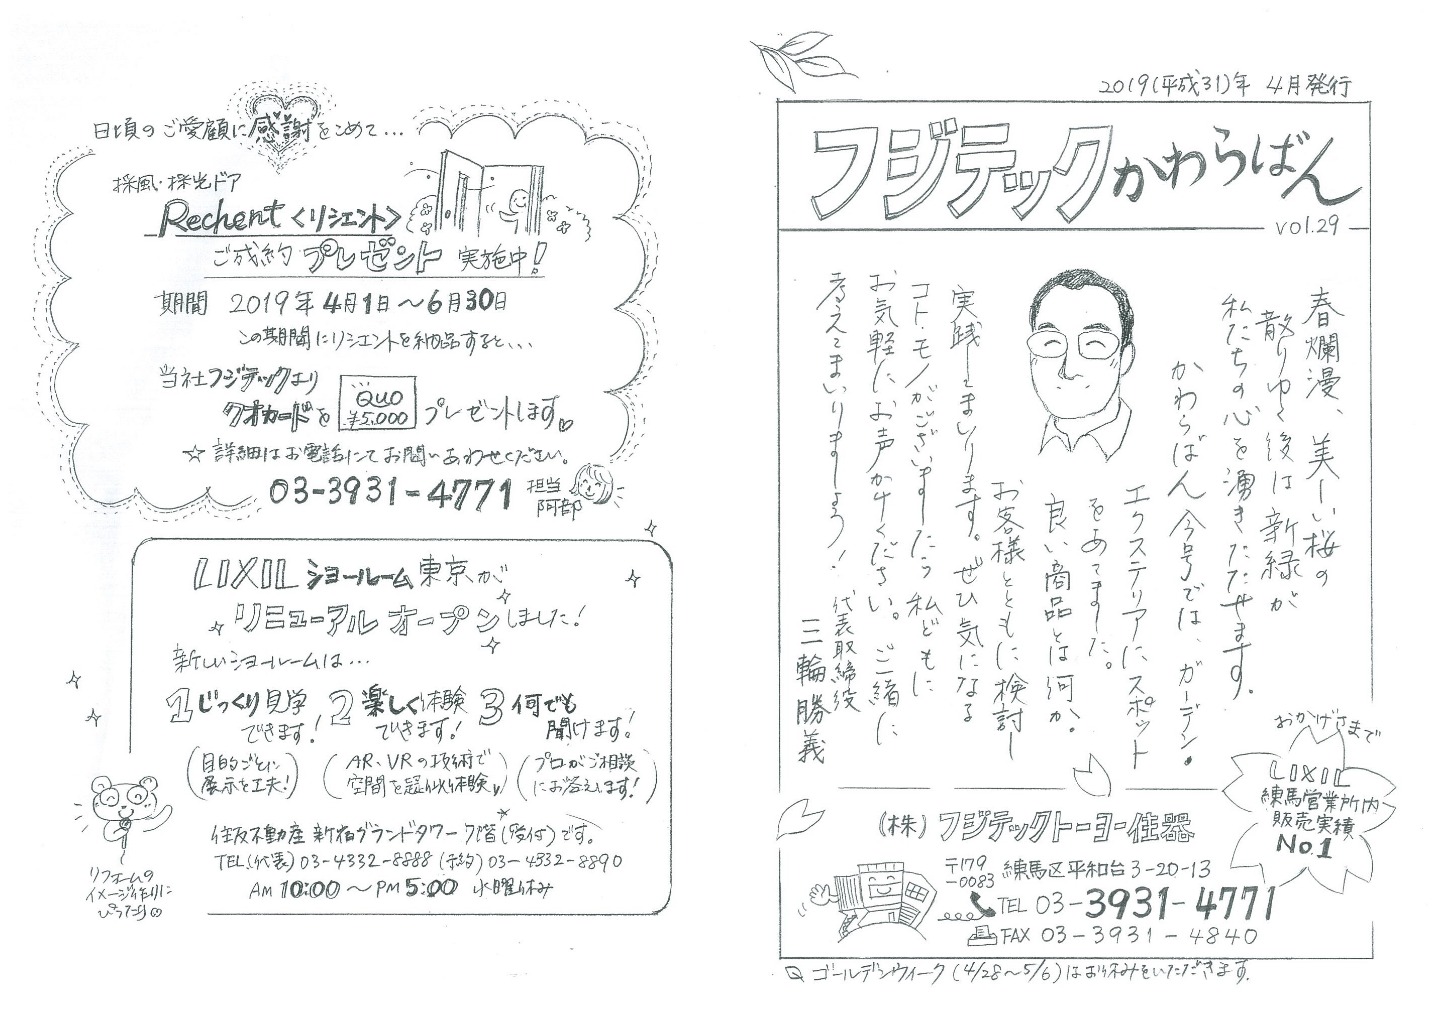 日頃のご愛顧に感謝をこめて...
採風・採光ドア
Rechent〈リシェント〉
ご成約プレゼント実施中!
期間 2019年4月1日〜6月30日
この期間にリシェントを納品すると、、、
当社フジテックより
クオカードを QUO ¥5,000 プレゼントします。
☆詳細はお電話にてお問いあわせください。
03-3931-4771 担当 阿部
LIXIL ショールーム東京が
リニューアルオープンしました!
新しいショールームは...
1 じっくり見学できます!
(目的ごとに展示を工夫!)
2 楽しく体験できます!
(AR、VRの技術で空間を疑似体験)
3 何でも聞けます!
(プロがご相談にお答えします!)
住友不動産 新宿グランドタワー7階(受付)です。
TEL(代表)03-4332-8888(予約)03-4332-8890
AM10:00〜PM5:00 水曜休み
リフォームの
イメージ作りに
ぴったり
2019(平成31)年 4月発行
フジテックかわらばん
vol.29
春爛漫、美しい桜の
散りゆく後は新緑が
私たちの心を湧きたたせます。
かわらばん今号では、ガーデン・
エクステリアにスポット
をあてました。
良い商品とは何か、
お客様とともに検討し
実践してまいります。ぜひ気になる
コト・モノがございましたら私どもに
お気軽にお声かけください。ご一緒に
考えてまいりましょう!
代表取締役
三輪勝義
おかげさまで
LIXIL
練馬営業所内
販売実績
No.1
(株)フジテックトーヨー住器
〒179-0083 練馬区平和台3-20-13
TEL 03-3931-4771
FAX 03-3931-4840
ゴールデンウィーク(4/28〜5/6)はお休みをいただきます。